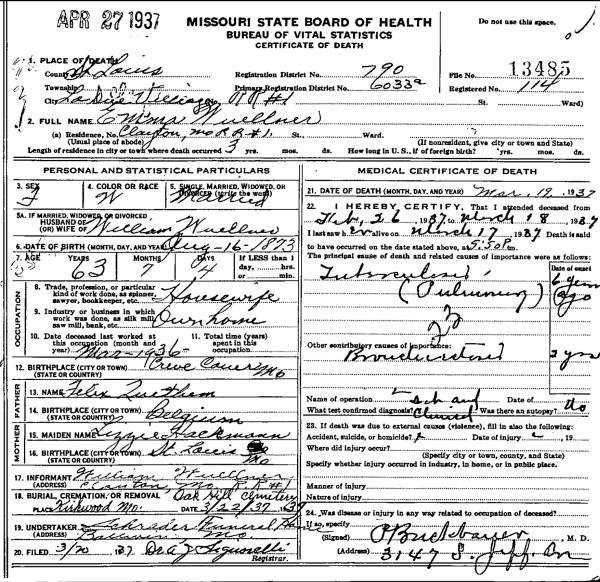 APR 27 1937
MISSOURI STATE BOARD OF HEALTH
BUREAU OF VITAL STATISTICS
CERTIFICATE OF DEATH
Do not use this space.
1. PLACE OF DEATH
County St Louis Registration District No. 790 File No. 13485
Township Primary Registration District No. 6033a Registered No. 114
City La Due Village No. RR#1 St. Ward)
2. FULL NAME Emma Wuellner
(a) Residence, No. Clayton, Mo R R #1. St., Ward.
(Usual place of abode) (If nonresident, give city or town and State)
Length of residence in city or town where death occurred 3 yrs. mos. ds. How long in U. S., if of foreign birth? yrs. mos. ds.
PERSONAL AND STATISTICAL PARTICULARS
3. SEX F
4. COLOR OR RACE W
5. SINGLE, MARRIED, WIDOWED, OR DIVORCED (write the word) Married
5A. IF MARRIED, WIDOWED, OR DIVORCED
HUSBAND OF (OR) WIFE OF William Wuellner
6. DATE OF BIRTH (MONTH, DAY, AND YEAR) Aug-16-1873
7. AGE YEARS 63 MONTHS 7 DAYS 4 If LESS than 1 day, hrs. or min.
OCCUPATION
8. Trade, profession, or particular kind of work done, as spinner, sawyer, bookkeeper, etc. Housewife
9. Industry or business in which work was done, as silk mill, saw mill, bank, etc. Own home
10. Date deceased last worked at this occupation (month and year) Mar-1936-
11. Total time (years) spent in this occupation.
12. BIRTHPLACE (CITY OR TOWN) Creve Coeur Mo
(STATE OR COUNTRY)
FATHER
13. NAME Felix
14. BIRTHPLACE (CITY OR TOWN) Belgium
(STATE OR COUNTRY)
MOTHER
15. MAIDEN NAME Lizzie Hackmann
16. BIRTHPLACE (CITY OR TOWN) St. Louis Mo
(STATE OR COUNTRY)
17. INFORMANT William Wuellner
(ADDRESS) Clayton Mo. R.R. #1
18. BURIAL, CREMATION, OR REMOVAL Oak Hill Cemetery
PLACE Kirkwood Mo. DATE 3/22/37 1937
19. UNDERTAKER Schrader Funeral Home
(ADDRESS) Ballwin, Mo.
20. FILED 3/20 37 Dr A J Signorelli
Registrar.
MEDICAL CERTIFICATE OF DEATH
21. DATE OF DEATH (MONTH, DAY, AND YEAR) Mar. 19, 1937
22. I HEREBY CERTIFY, That I attended deceased from
Feb. 26 1937 to March 18 1937
I last saw her alive on March 17 1937 Death is said
to have occurred on the date stated above, at 5:50 P m.
The principal cause of death and related causes of importance were as follows:
Date of onset
Tuberculosis 6 years
(Pulmonary) ago
23
Other contributory causes of importance:
2 yrs
Name of operation Date of
What test confirmed diagnosis? Clinical Was there an autopsy? No
23. If death was due to external causes (violence), fill in also the following:
Accident, suicide, or homicide? Date of injury , 19
Where did injury occur?
(Specify city or town, county, and State)
Specify whether injury occurred in industry, in home, or in public place.
Manner of injury
Nature of injury
24. Was disease or injury in any way related to occupation of deceased?
If so, specify
(Signed) , M. D.
(Address) 3147 S. Jeff.